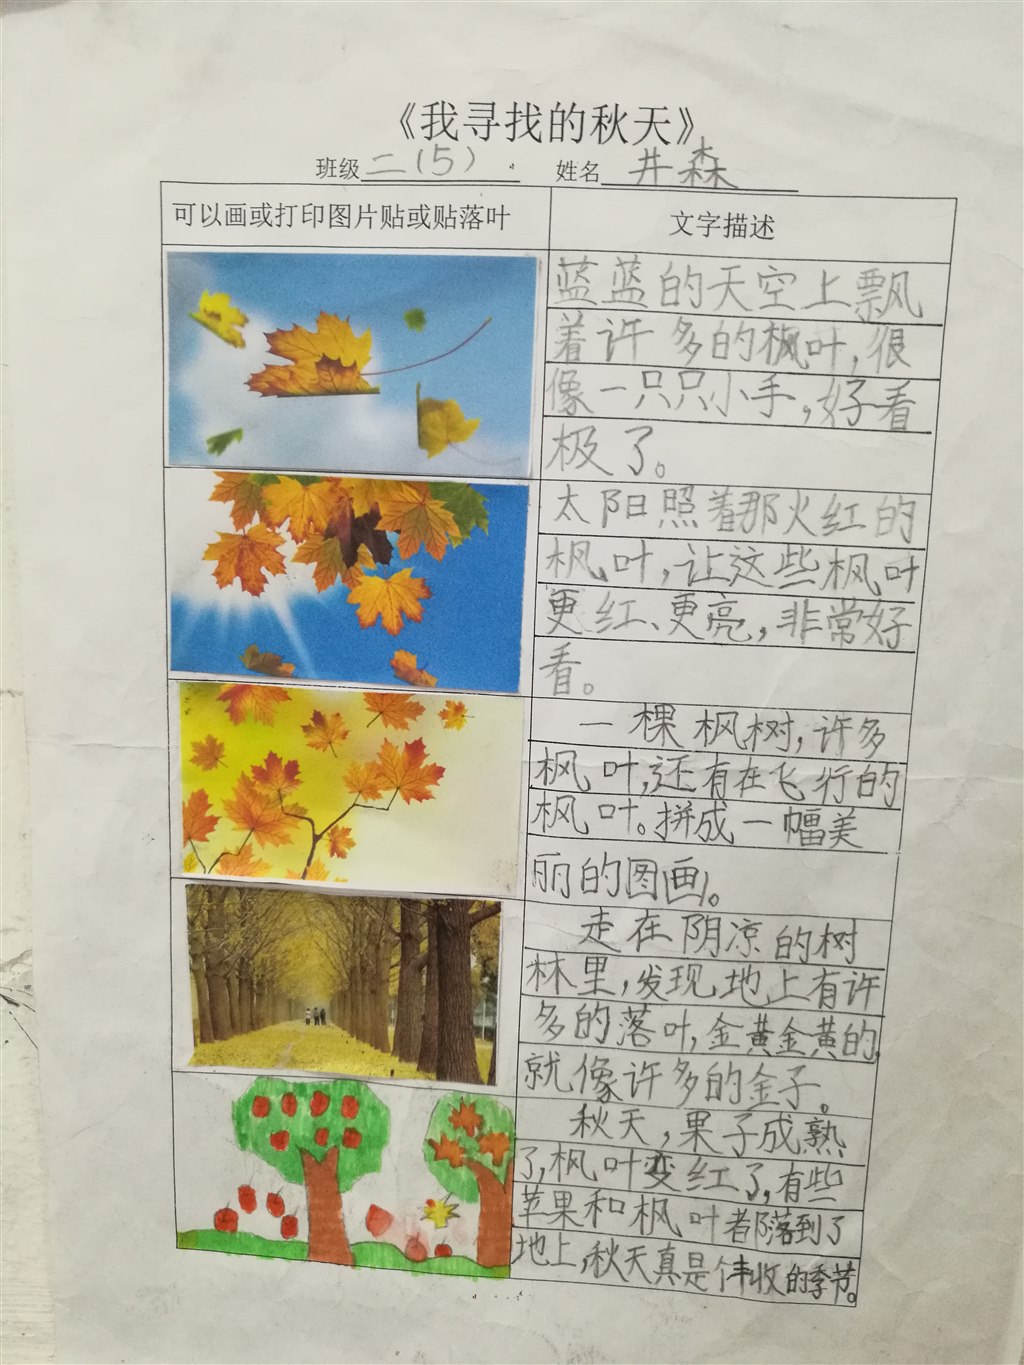 《我寻找的秋天》
班级二(5) 姓名井森
可以画或打印图片贴或贴落叶
文字描述
蓝蓝的天空上飘
着许多的枫叶,很
像一只只小手,好看
极了。
太阳照着那火红的
枫叶,让这些枫叶
更红、更亮,非常好
看。
一棵枫树,许多
枫叶,还有在飞行的
枫叶。拼成一幅美
丽的图画。
走在阴凉的树
林里,发现地上有许
多的落叶,金黄金黄的,
就像许多的金子。
秋天,果子成熟
了,枫叶变红了,有些
苹果和枫叶都落到了
地上,秋天真是个丰收的季节。